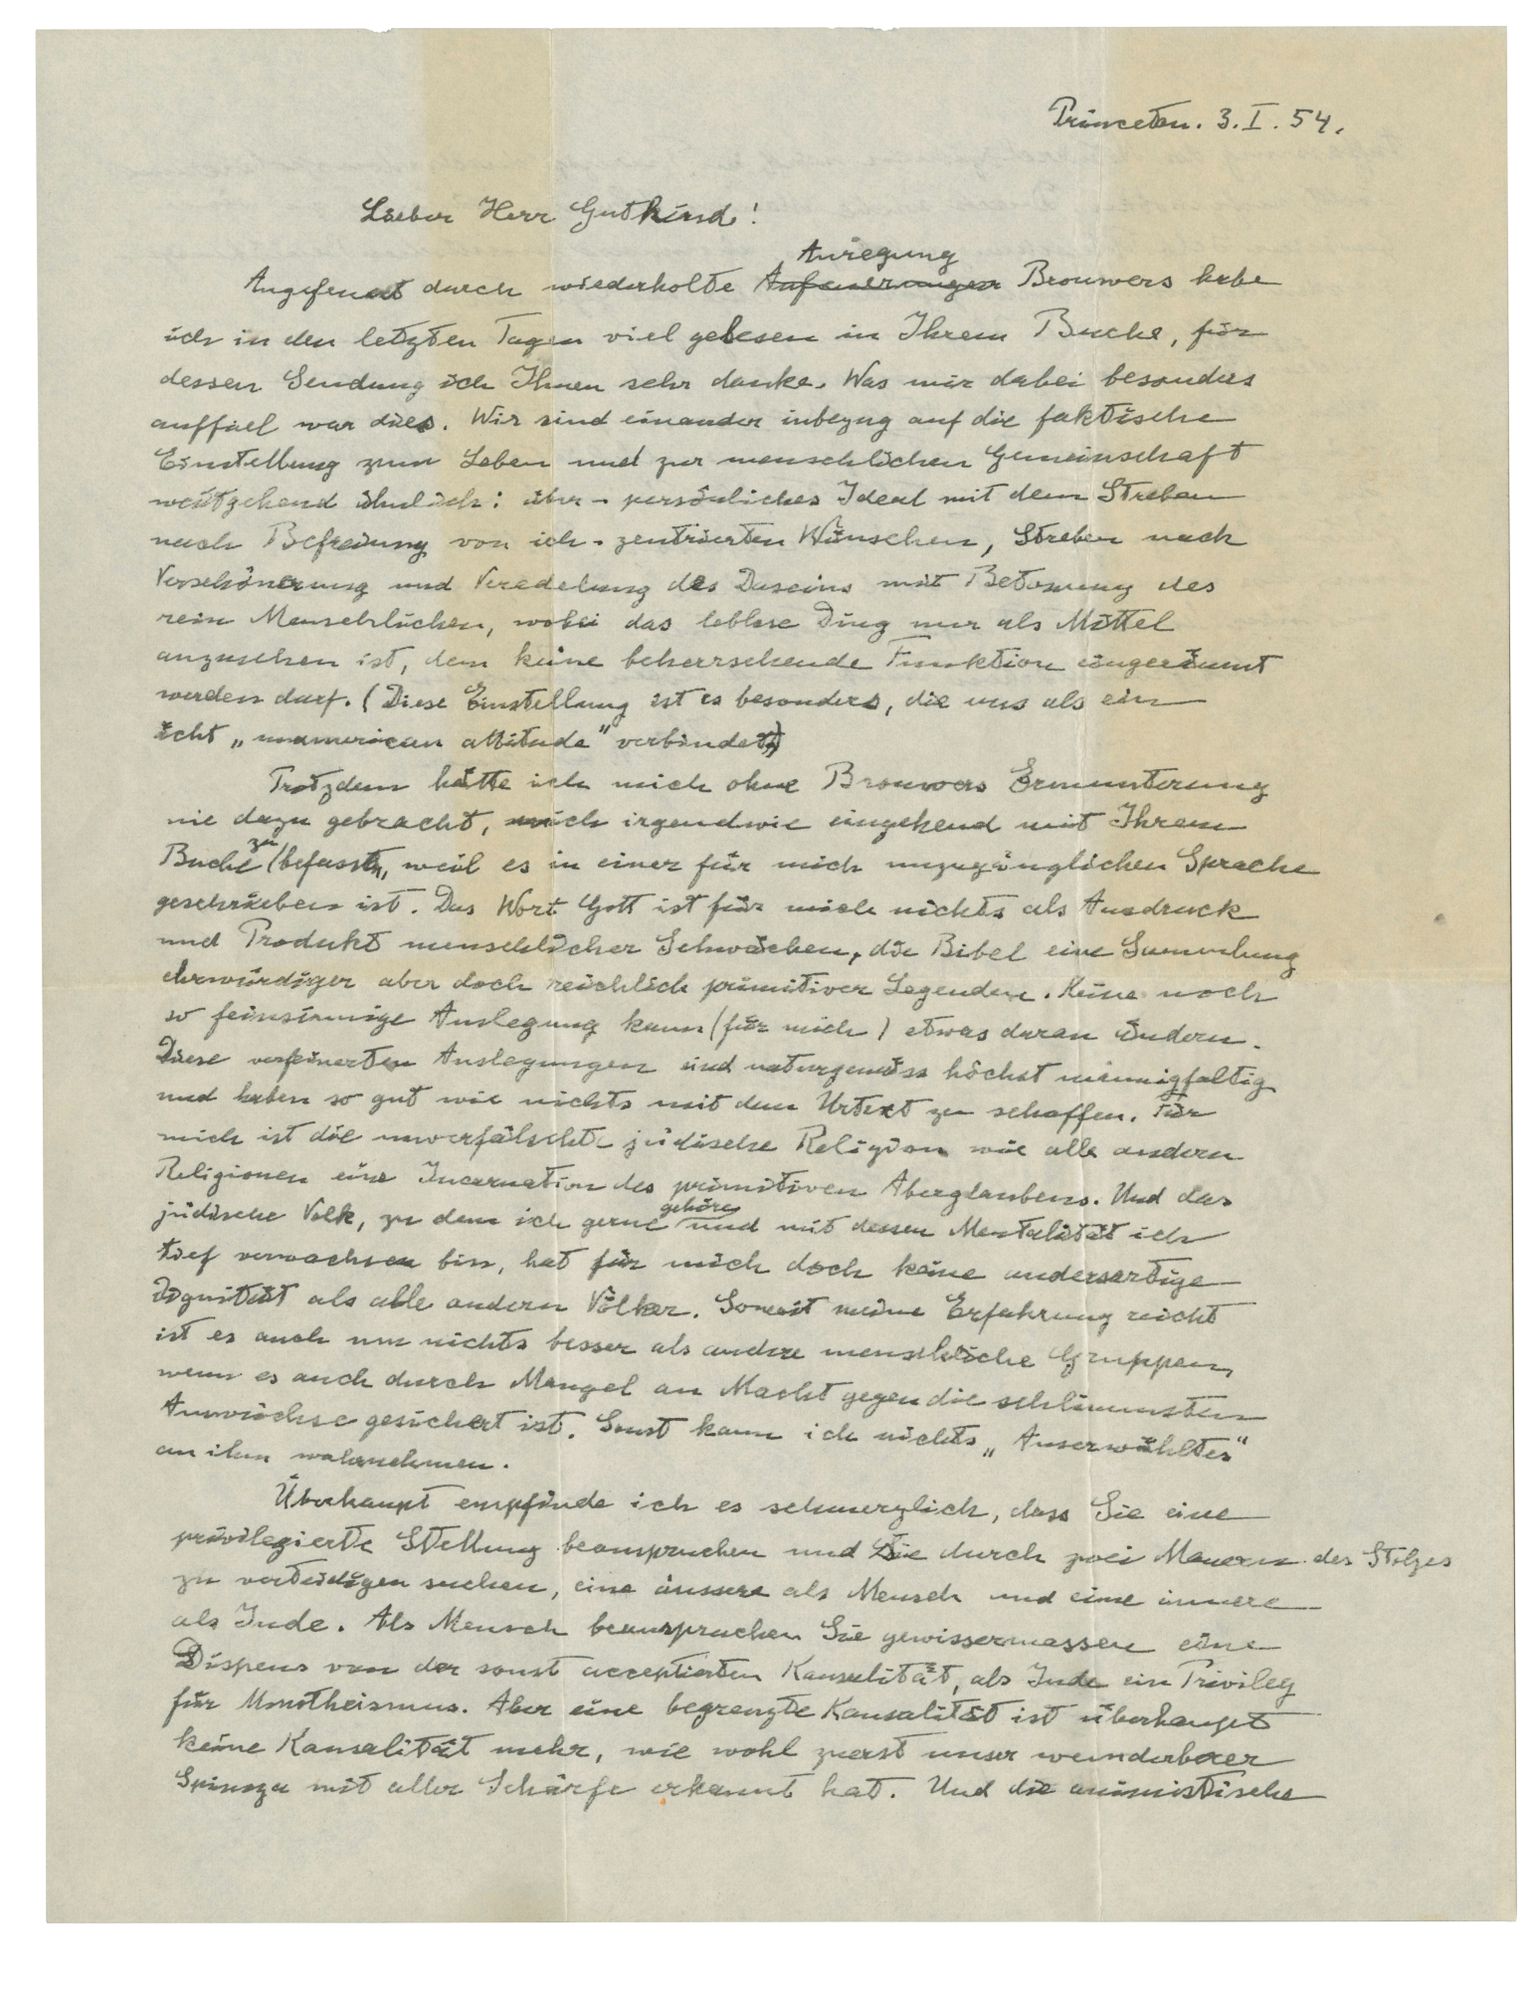 Princeton. 3. I. 54.
Lieber Herr Gutkind!
Anregung
Angefeuert durch wiederholte Anfeuerungen Brouwers habe
ich in den letzten Tagen viel gelesen in Ihrem Buche, für
dessen Sendung ich Ihnen sehr danke. Was mir dabei besonders
auffiel war dies. Wir sind einander inbezug auf die faktische
Einstellung zum Leben und zur menschlichen Gemeinschaft
weitgehend ähnlich: über-persönliches Ideal mit dem Streben
nach Befreiung von ich-zentrierten Wünschen, Streben nach
Verschönerung und Veredelung des Daseins mit Betonung des
rein Menschlichen, wobei das leblose Ding nur als Mittel
anzusehen ist, dem keine beherrschende Funktion eingeräumt
werden darf. (Diese Einstellung ist es besonders, die uns als ein
ächt „unamerican attitude" verbindet.)
Trotzdem hätte ich mich ohne Brouwers Ermunterung
nie dazu gebracht, mich irgendwie eingehend mit Ihrem
Buche zu befassen, weil es in einer für mich unzugänglichen Sprache
geschrieben ist. Das Wort Gott ist für mich nichts als Ausdruck
und Produkt menschlicher Schwächen, die Bibel eine Sammlung
ehrwürdiger aber doch reichlich primitiver Legenden. Keine noch
so feinsinnige Auslegung kann (für mich) etwas daran ändern.
Diese verfeinerten Auslegungen sind naturgemäss höchst mannigfaltig
und haben so gut wie nichts mit dem Urtext zu schaffen. Für
mich ist die unverfälschte jüdische Religion wie alle andern
Religionen eine Incarnation des primitiven Aberglaubens. Und das
jüdische Volk, zu dem ich gerne gehöre und mit dessen Mentalität ich
tief verwachsen bin, hat für mich doch keine andersartige
Dignität als alle andern Völker. Soweit meine Erfahrung reicht
ist es auch um nichts besser als andere menschliche Gruppen,
wenn es auch durch Mangel an Macht gegen die schlimmsten
Auswüchse gesichert ist. Sonst kann ich nichts „Auserwähltes"
an ihm wahrnehmen.
Überhaupt empfinde ich es schmerzlich, dass Sie eine
privilegierte Stellung beanspruchen und Sie durch zwei Mauern des Stolzes
zu verteidigen suchen, eine äussere als Mensch und eine innere
als Jude. Als Mensch beanspruchen Sie gewissermassen eine
Dispens von der sonst acceptierten Kausalität, als Jude ein Privileg
für Monotheismus. Aber eine begrenzte Kausalität ist überhaupt
keine Kausalität mehr, wie wohl zuerst unser wunderbarer
Spinoza mit aller Schärfe erkannt hat. Und die animistische